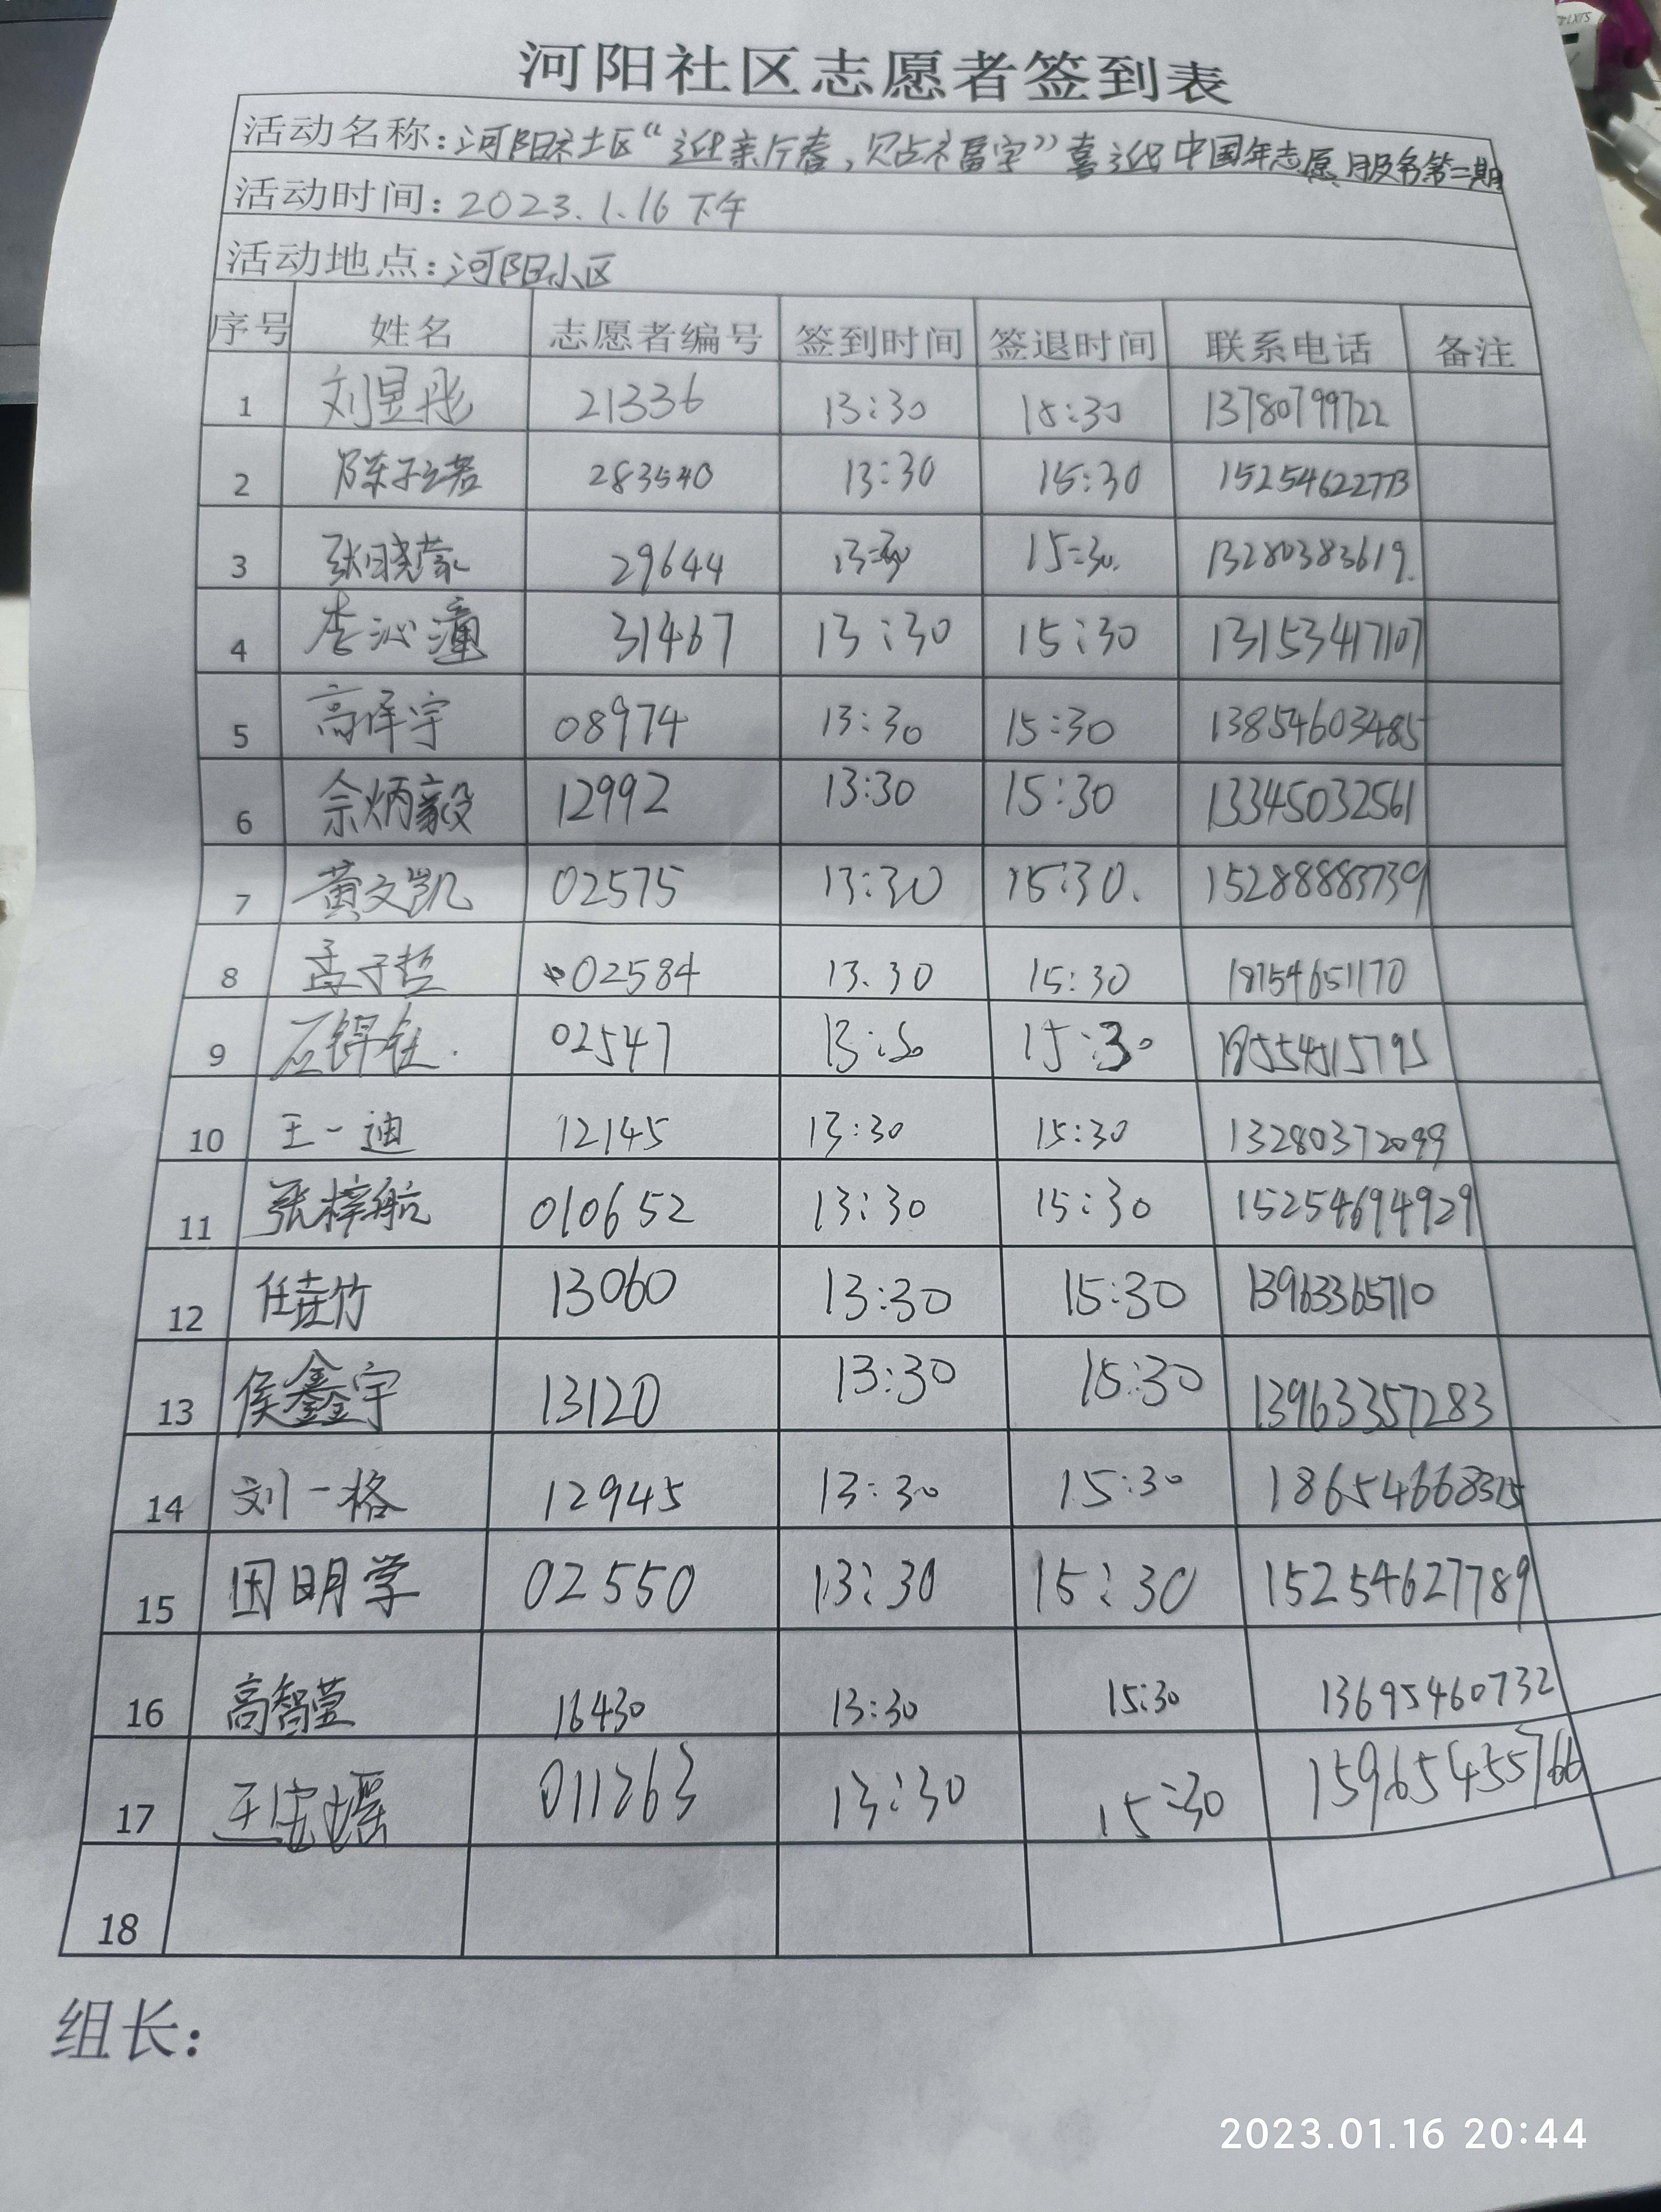 河阳社区志愿者签到表
活动名称:河阳社区“迎新春,贴福字”喜迎中国年志愿服务第二期
活动时间:2023.1.16 下午
活动地点:河阳小区
序号 姓名 志愿者编号 签到时间 签退时间 联系电话 备注
1 刘昱彤 21336 13:30 15:30 13780799722
2 陈子若 283540 13:30 15:30 15254622773
3 张晓蒙 29644 13:30 15:30. 13280383619.
4 李沁潼 31467 13:30 15:30 13153417107
5 高泽宇 08974 13:30 15:30 13854603485
6 佘炳毅 12992 13:30 15:30 13345032561
7 黄文凯 02575 13:30 15:30. 15288883739
8 孟于哲 02584 13.30 15:30 18754651170
9 02547 13:30 15:30
10 王一迪 12145 13:30 15:30 13280372099
11 张梓航 010652 13:30 15:30 15254694929
12 任垚竹 13060 13:30 15:30 13963365710
13 侯鑫宇 13120 13:30 15:30 13963357283
14 刘一格 12945 13:30 15:30 18654668315
15 田明学 02550 13:30 15:30 15254627789
16 高智萱 16430 13:30 15:30 13695460732
17 011263 13:30 15:30 15965455766
18
组长:
2023.01.16 20:44